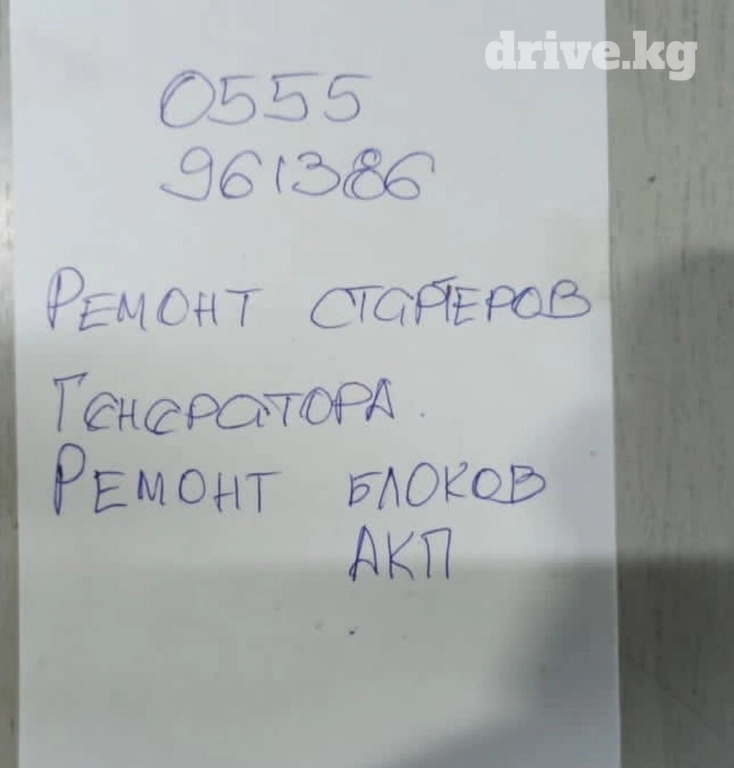 drive.kg
0555
961386
Ремонт стартеров
Генератора.
Ремонт блоков
АКП